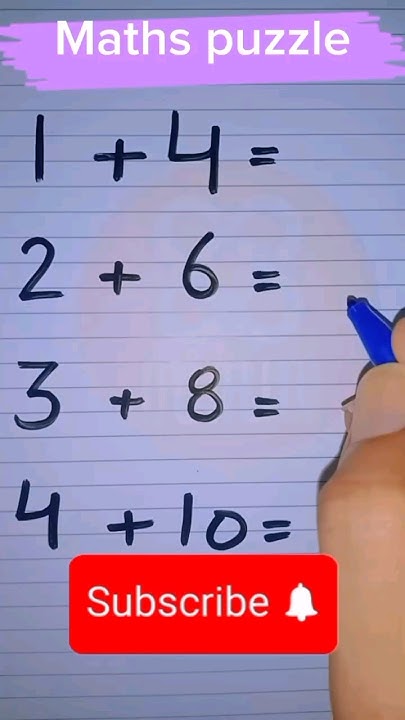 Maths puzzle
1 + 4 =
2 + 6 =
3 + 8 =
4 + 10 =
Subscribe